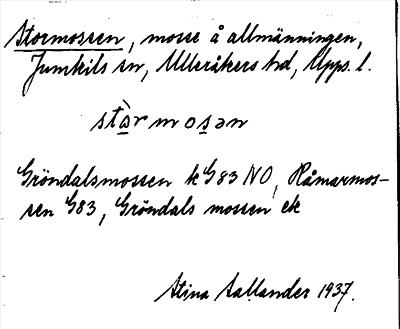 Stormossen, mosse å allmänningen,
Jumkils sn, Ulleråkers hd, Upps. l.
stὰrmosən
Gröndalsmossen k G83 NO, Råmarmos-
sen G83, Gröndals mossen ek
Stina Sallander 1937.